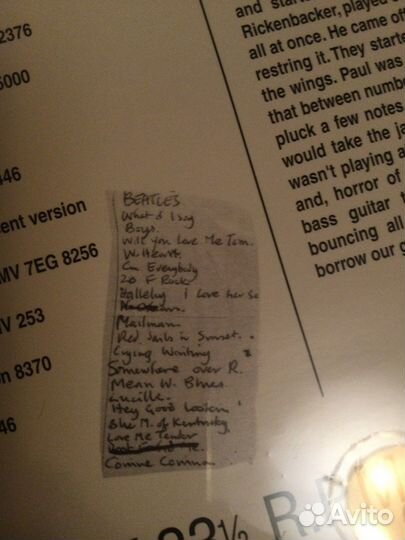 2376
5000
446
ent version
MV 7EG 8256
V 253
n 8370
46
and started
Rickenbacker, played
all at once. He came off
restring it. They starte
the wings. Paul was
that between numbe
pluck a few notes
would take the ja
wasn't playing a
and, horror of
bass guitar t
bouncing all
borrow our g
BEATLES
What d I say
Boys.
Will you Love Me Tom.
W. Heart.
Cn Everybody
20 F Rock
Hallelug i Love her So
Mailman
Red Sails in Sunset.
Crying Waiting
Somewhere over R.
Mean W. Blues.
Lucille.
Hey Good Lookin'
Blue M. of Kentucky
Love Me Tender
Comme Comma
33½ R.P.M
Avito